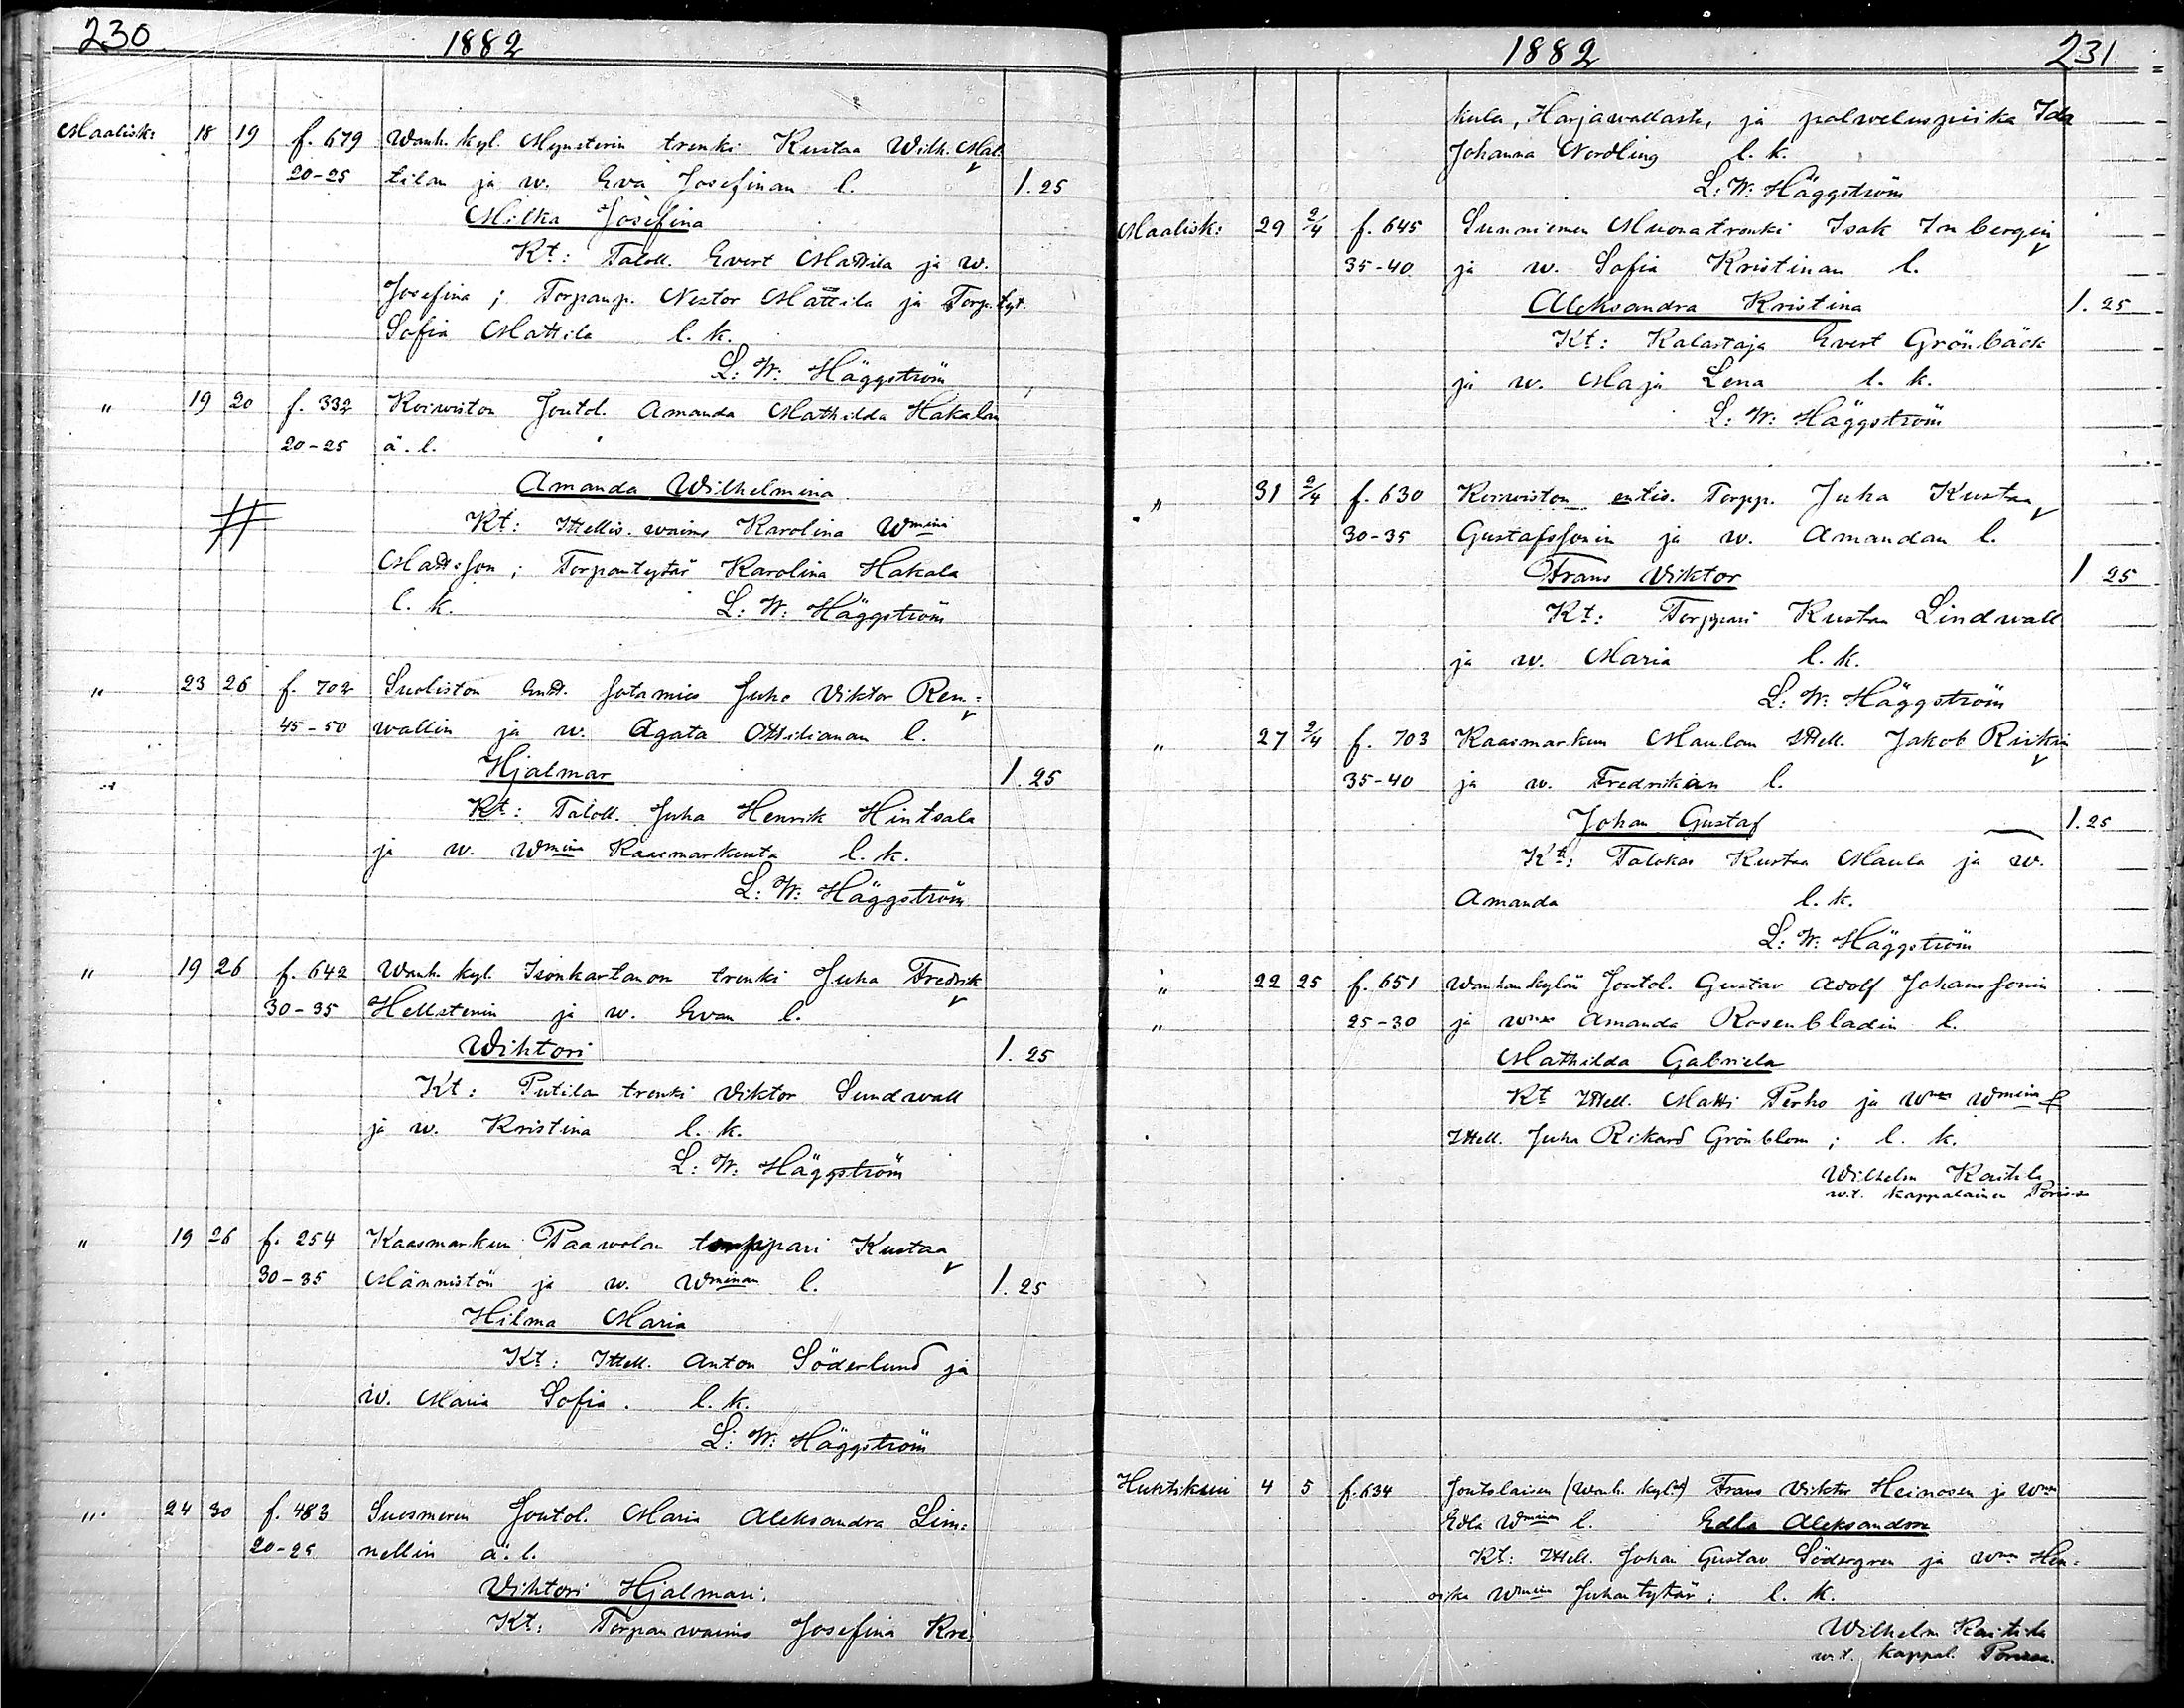 230
1882
Maalisk: 18 19 f. 679 Wanh. kyl. Mynsterin trenki Kustaa Wilh. Mat-
20-25 tilan ja w. Eva Josefinan l. 1.25
Milka Josefina
Kt: Taloll. Evert Mattila ja w.
Josefina; Torpanp. Nestor Mattila ja Torp. tyt.
Sofia Mattila l. k.
L: W: Häggström
" 19 20 f. 332 Koiwiston Joutol. Amanda Mathilda Hakalan
20-25 ä. l.
Amanda Wilhelmina
# Kt: Ittellis. waimo Karolina Wmina
Mattsson; Torpantytär Karolina Hakala
l. k. L: W: Häggström
" 23 26 f. 702 Suoliston Jotamies Juho Viktor Ren=
45-50 wallin ja w. Agata Ottilianan l.
Hjalmar 1.25
Kt: Taloll. Juha Henrik Hintsala
ja w. Wmina Kaasmarkusta l. k.
L: W: Häggström
" 19 26 f. 642 Wanh. kyl. Isonkartanon trenki Juha Fredrik
30-35 Hellstenin ja w. Evan l.
Wihtori 1.25
Kt: Putilan trenki Viktor Sundwall
ja w. Kristina l. k.
L: W: Häggström
" 19 26 f. 254 Kaasmarkun Paawolan torppari Kustaa
30-35 Männistön ja w. Wminan l. 1.25
Hilma Maria
Kt: Ittell. Anton Söderlund ja
w. Maria Sofia. l. k.
L: W: Häggström
" 24 30 f. 483 Suosmeren Joutol. Maria Aleksandra Lin=
20-25 nellin ä. l.
Vihtori Hjalmari.
Kt: Torpanwaimo Josefina
1882
231
kula, Harjawallasta, ja palweluspiika Ida
Johanna Nordling l. k.
L: W: Häggström
Maalisk: 29 2/4 f. 645 Sunniemen Muonatrenki Isak Inbergin
35-40 ja w. Sofia Kristinan l.
Aleksandra Kristina 1.25
Kt: Kalastaja Evert Grönbäck
ja w. Maja Lena l. k.
L: W: Häggström
" 31 2/4 f. 630 Koiwiston entis. Torpp. Juha Kustaa
30-35 Gustafssonin ja w. Amandan l.
Frans Viktor 1 25
Kt: Torppari Kustaa Lindwall
ja w. Maria l. k.
L: W: Häggström
" 27 2/4 f. 703 Kaasmarkun Maulan Ittell. Jakob Riikin
35-40 ja w. Fredrikan l.
Johan Gustaf 1.25
Kt: Talokas Kustaa Maula ja w.
Amanda l. k.
L: W: Häggström
" 22 25 f. 651 Wanhankylän Joutol. Gustav Adolf Johanssonin
" 25-30 ja wmon Amanda Rosenbladin l.
Mathilda Gabriela
Kt Ittell. Matti Perho ja wmo Wmina
Ittell. Juha Rikard Grönblom; l. k.
Wilhelm Kaitila
w.t. kappalainen Porissa
Huhtikuu 4 5 f. 634 Joutolaisen (Wanh. kylän) Frans Viktor Heinosen ja wmon
Edla Wminan l. Edla Aleksandra
Kt: Ittell. Johan Gustav Södergren ja wmo Hen=
rika Wmina Juhantytär; l. k.
Wilhelm Kaitila
w.t. kappal. Porissa.